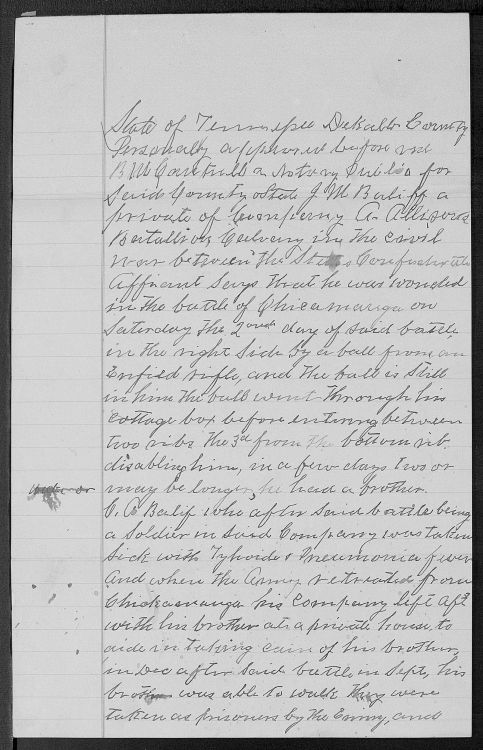 State of Tennessee Dekalb County
Personally appeared before me
B M Cantrell a Notary Public for
said County & State J M Baliff a
private of Company A. Allisons
Batallion Calvary in the civil
war between the States Confederate
Affiant Says that he was wounded
in the battle of Chicamauga on
Saturday the 2ond day of said battle
in the right Side by a ball from an
Enfield rifle, and the ball is still
in him the ball went through his
cottage box before entering between
two ribs the 3d from the bottom rib.
disabling him, in a few days two or
may be longer, he had a brother.
Balif who after said battle being
a Soldier in said Company was taken
Sick with Typhoid & Pneumonia fever
And when the Army retreated from
Chickamauga his Company left Afft
with his brother at a private house, to
aide in taking care of his brother,
in Dec after said battle in Sept, his
brother was able to walk they were
taken as prisoners by the Enemy, and